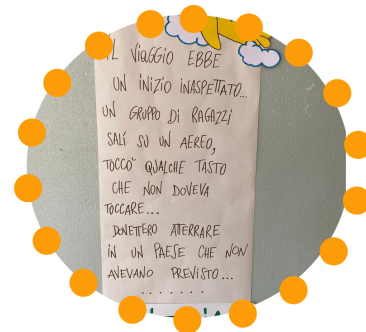 IL VIAGGIO EBBE
UN INIZIO INASPETTATO...
UN GRUPPO DI RAGAZZI
SALÌ SU UN AEREO,
TOCCÒ QUALCHE TASTO
CHE NON DOVEVA
TOCCARE...
DOVETTERO ATTERRARE
IN UN PAESE CHE NON
AVEVANO PREVISTO...
.......